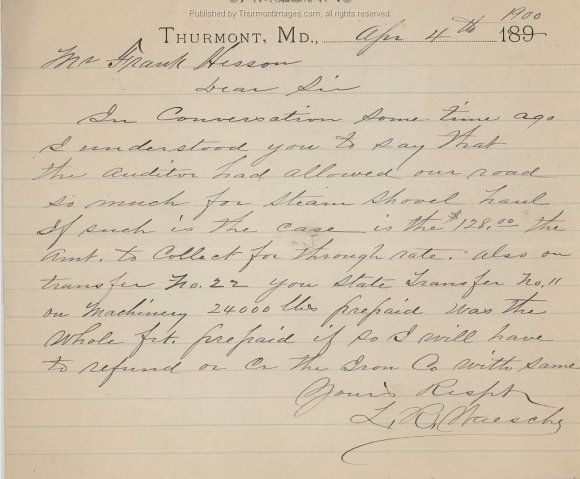 Published by Thurmontimages.com, all rights reserved.
THURMONT, MD., Apr 4th 1900 189
Mr Frank Hesson
Dear Sir
In Conversation some time ago
I understood you to say that
the auditor had allowed our road
so much for Steam Shovel haul
If such is the case is the $128.00 the
Amt. to Collect for through rate. Also on
transfer No. 22 you State Transfer No. 11
on Machinery 24000 lbs prepaid was the
Whole frt. prepaid if so I will have
to refund or Cr the Iron Co with same
Yours Respt
L. R. Waesche